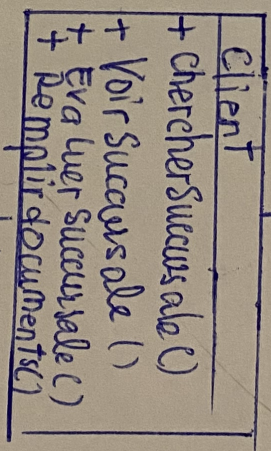 Client
+ chercherSuccursale()
+ Voir Succursale ()
+ Evaluer Succursale()
+ Remplir documents()